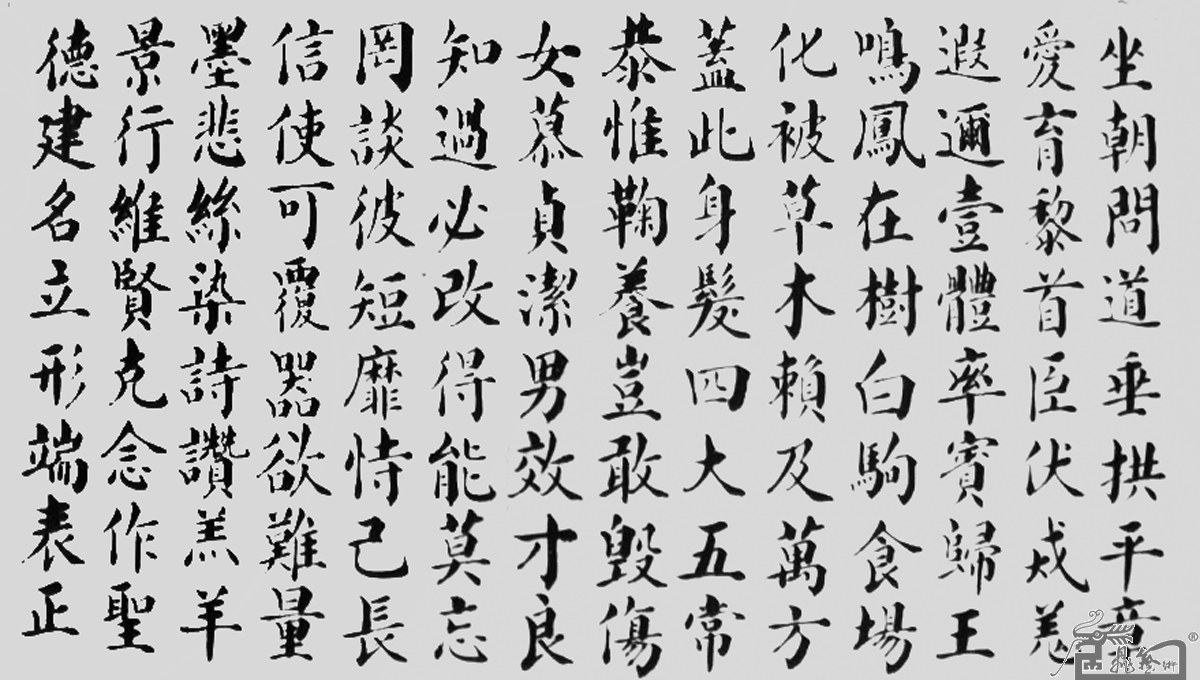 坐朝問道垂拱平章
愛育黎首臣伏戎羌
遐邇壹體率賓歸王
鳴鳳在樹白駒食場
化被草木賴及萬方
蓋此身髮四大五常
恭惟鞠養豈敢毀傷
女慕貞潔男效才良
知過必改得能莫忘
罔談彼短靡恃己長
信使可覆器欲難量
墨悲絲染詩讚羔羊
景行維賢克念作聖
德建名立形端表正